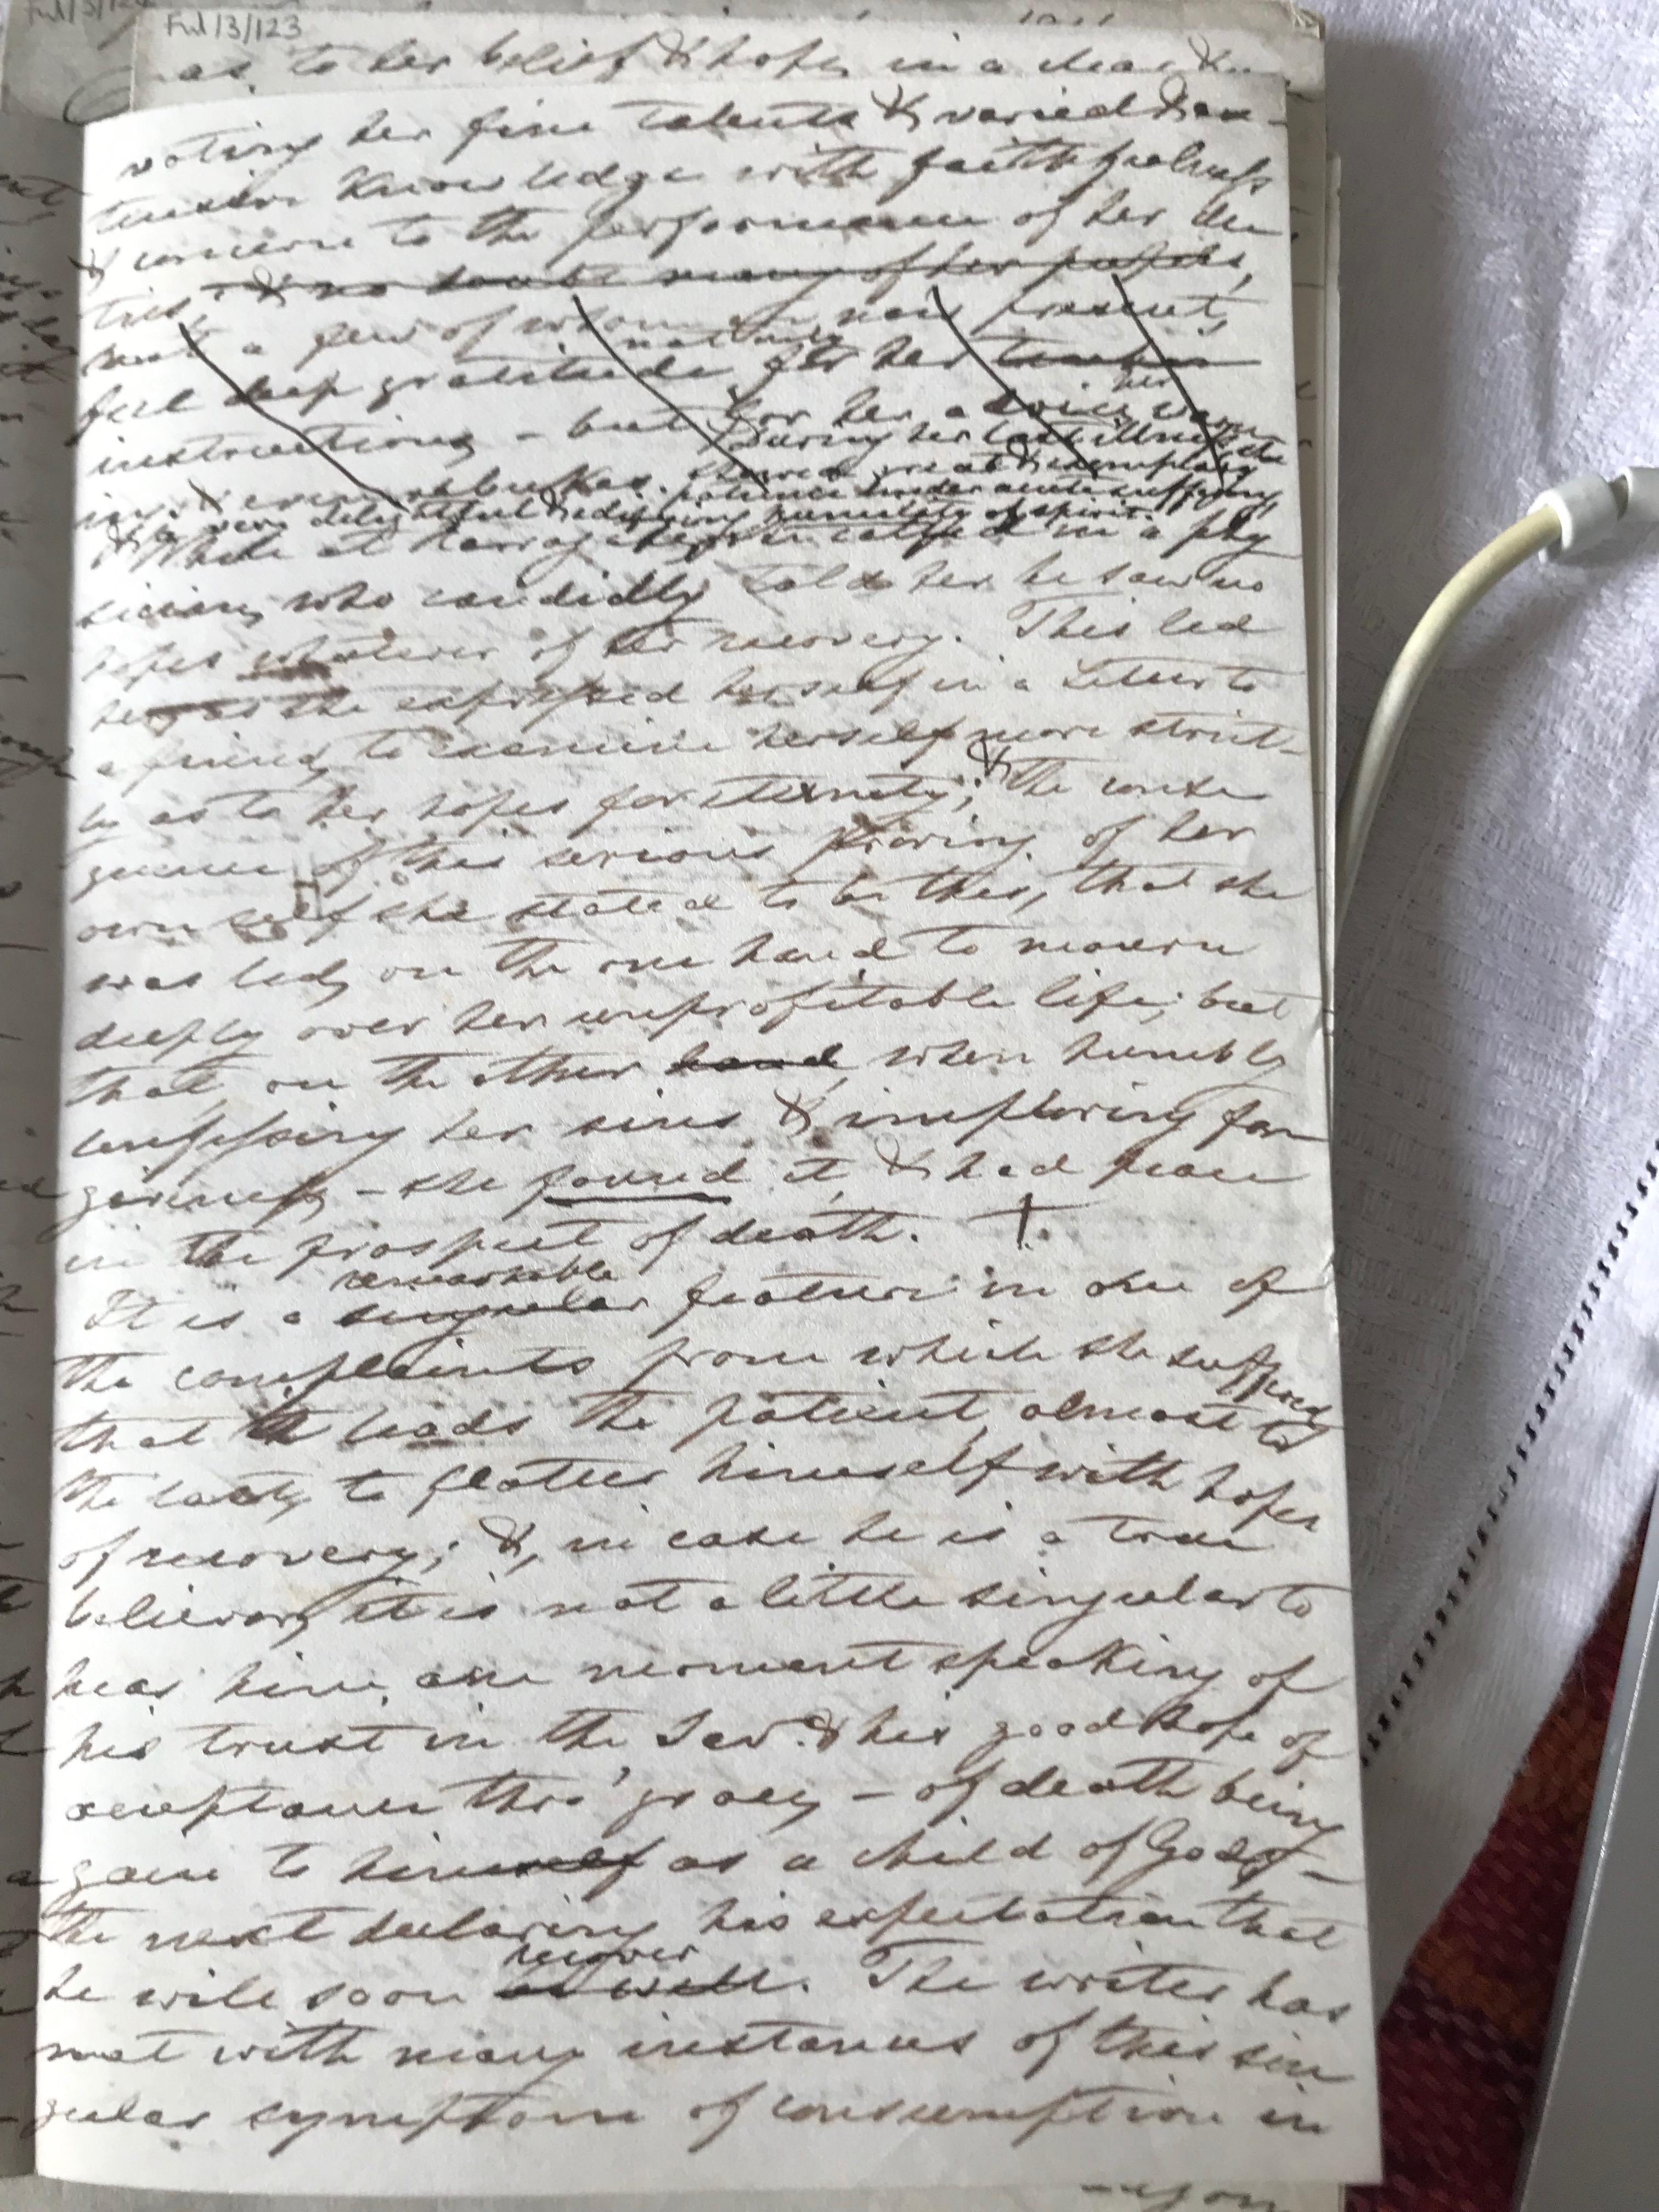 Ful/3/123
as to her belief & hope, in a clear &
voting her fine talents & varied & ex-
tensive knowledge with faithfulness
& concern to the performance of her du
ties, & no doubt many of her pupils,
not a few of whom are now present,
not only
feel deep gratitude for her
her
instructions - but for her advice, warn
During her last illness she
ings & even rebukes. showed great & exemplary
patience under acute suffering,
& a very delightful & edifying humility of spirit.
While at Harrogate, she called in a phy
sician, who candidly told her he saw no
hopes whatever of her recovery. This led
her as she expressed herself in a Letter to
a friend, to examine herself more strict-
ly as to her hopes for eternity; & the conse
quence of this serious proving of her
own self she stated to be this, that she
was led, on the one hand to mourn
deeply over her unprofitable life; but
that, on the other hand, when humbly
confessing her sins & imploring for
giveness, - she found it, & had peace
in the prospect of death. †
remarkable
It is a singular feature in one of
the complaints from which she suffered
that it leads the patient, almost to
the last, to flatter himself with hopes
of recovery; &, in case he is a true
believer, it is not a little singular to
hear him, one moment speaking of
his trust in the Savr. & his good hope of
acceptance thro' grace, - of death being
gain to himself as a child of God, -
the next declaring his expectation that
recover
he will soon be well. The writer has
met with many instances of this sin
gular symptom of consumption in